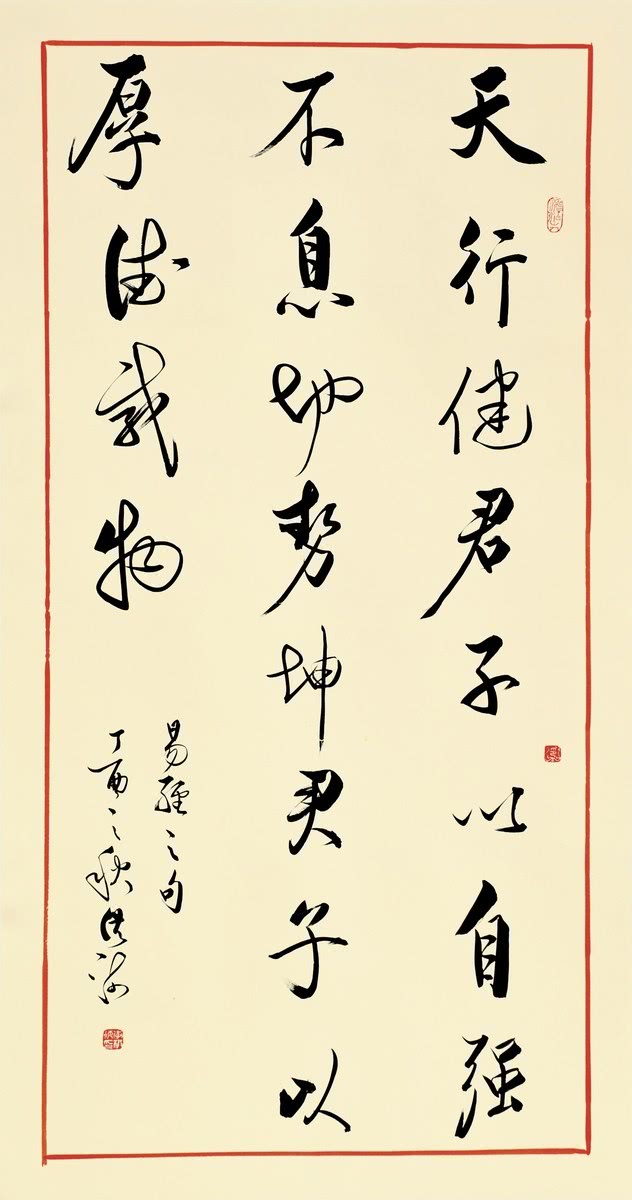 天行健君子以自强
不息地势坤君子以
厚德载物
易经之句
丁酉之秋